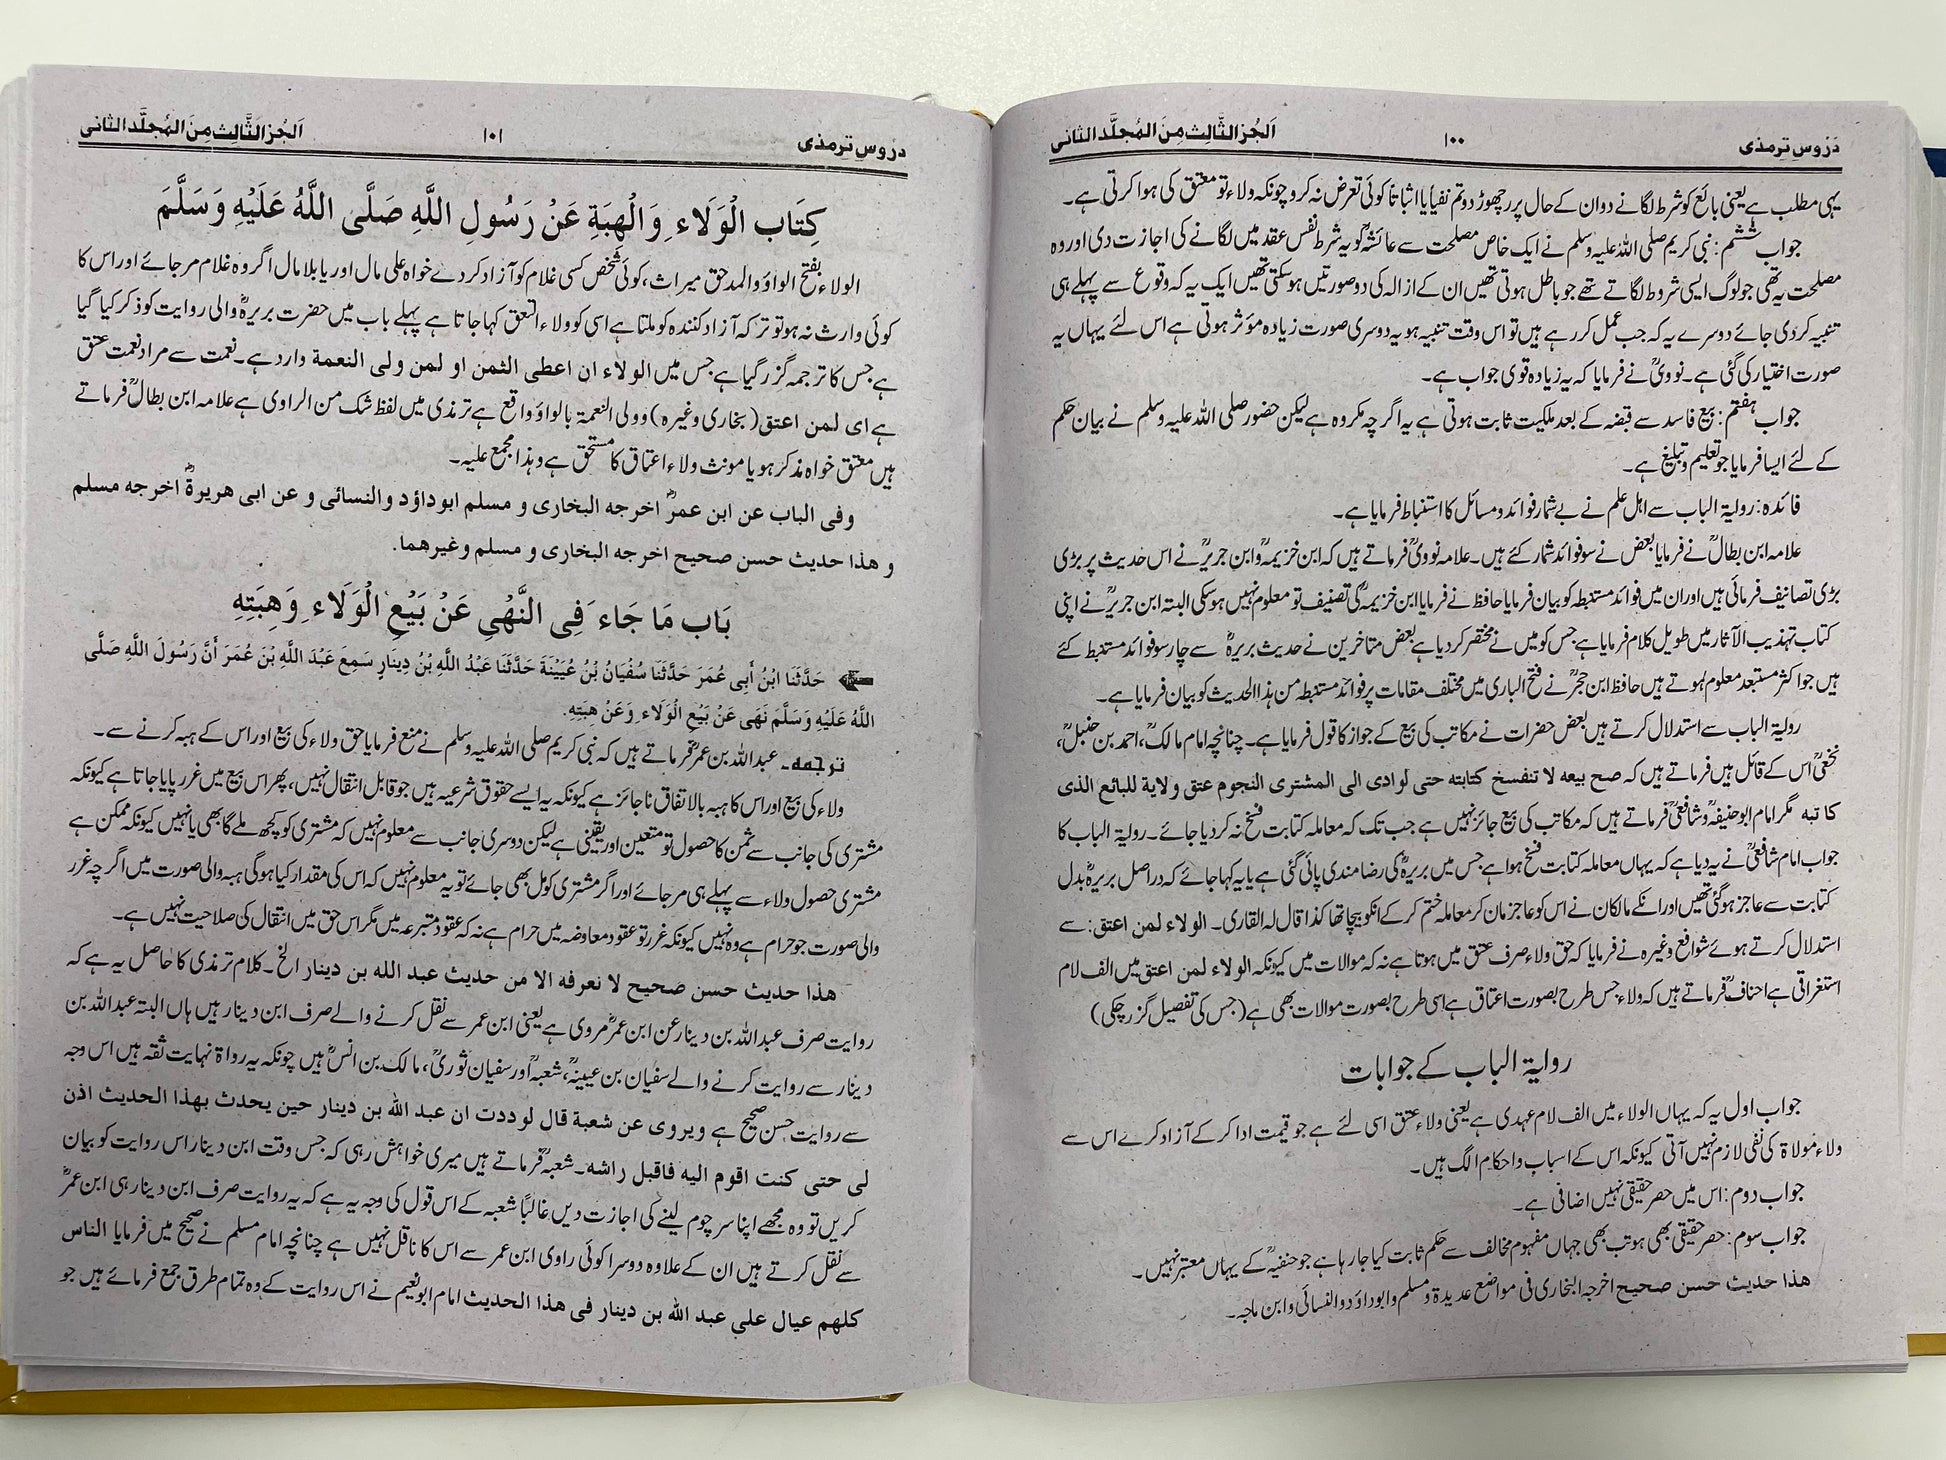 دروسِ ترمذی ۱۰۰ اَلجُز الثَّالِث مِنَ المُجلَّد الثانی
یہی مطلب ہے یعنی بائع کو شرط لگانے دو ان کے حال پر چھوڑ دو تم نفیاً یا اثباتاً کوئی تعرض نہ کرو چونکہ ولاء تو معتِق کی ہوا کرتی ہے۔
جواب ششم: نبی کریم صلی اللہ علیہ وسلم نے ایک خاص مصلحت سے عائشہؓ کو یہ شرط نفس عقد میں لگانے کی اجازت دی اور وہ
مصلحت یہ تھی جو لوگ ایسی شروط لگاتے تھے جو باطل ہوتی تھیں ان کے ازالہ کی دو صورتیں ہوسکتی تھیں ایک یہ کہ وقوع سے پہلے ہی
تنبیہ کردی جائے دوسرے یہ کہ جب عمل کر رہے ہیں تو اس وقت تنبیہ ہو یہ دوسری صورت زیادہ مؤثر ہوتی ہے اس لئے یہاں یہ
صورت اختیار کی گئی ہے۔ نوویؒ نے فرمایا کہ یہ زیادہ قوی جواب ہے۔
جواب ہفتم: بیع فاسد سے قبضہ کے بعد ملکیت ثابت ہوتی ہے یہ اگرچہ مکروہ ہے لیکن حضور صلی اللہ علیہ وسلم نے بیان حکم
کے لئے ایسا فرمایا جو تعلیم و تبلیغ ہے۔
فائدہ: روایۃ الباب سے اہل علم نے بے شمار فوائد و مسائل کا استنباط فرمایا ہے۔
علامہ ابن بطالؒ نے فرمایا بعض نے سو فوائد شمار کئے ہیں۔ علامہ نوویؒ فرماتے ہیں کہ ابن خزیمہؒ و ابن جریرؒ نے اس حدیث پر بڑی
بڑی تصانیف فرمائی ہیں اور ان میں فوائد مستنبطہ کو بیان فرمایا حافظ نے فرمایا ابن خزیمہؒ کی تصنیف تو معلوم نہیں ہوسکی البتہ ابن جریرؒ نے اپنی
کتاب تہذیب الآثار میں طویل کلام فرمایا ہے جس کو میں نے مختصر کردیا ہے بعض متاخرین نے حدیث بریرہؓ سے چار سو فوائد مستنبط کئے
ہیں جو اکثر مستبعد معلوم ہوتے ہیں حافظ ابن حجرؒ نے فتح الباری میں مختلف مقامات پر فوائد مستنبطہ من ہذا الحدیث کو بیان فرمایا ہے۔
روایۃ الباب سے استدلال کرتے ہیں بعض حضرات نے مکاتب کی بیع کے جواز کا قول فرمایا ہے۔ چنانچہ امام مالکؒ، احمد بن حنبلؒ،
نخعیؒ اس کے قائل ہیں فرماتے ہیں کہ صح بیعه لا تنفسخ کتابته حتی لو ادی الی المشتری النجوم عتق ولایة للبائع الذی
کاتبه مگر امام ابوحنیفہؒ و شافعیؒ فرماتے ہیں کہ مکاتب کی بیع جائز نہیں ہے جب تک کہ معاملہ کتابت فسخ نہ کردیا جائے۔ روایۃ الباب کا
جواب امام شافعیؒ نے یہ دیا ہے کہ یہاں معاملہ کتابت فسخ ہوا ہے جس میں بریرہؓ کی رضامندی پائی گئی ہے یا یہ کہا جائے کہ دراصل بریرہؓ بدل
کتابت سے عاجز ہوگئی تھیں اور انکے مالکان نے اس کو عاجز مان کر معاملہ ختم کرکے انکو بیچا تھا کذا قال لہ القاری۔ الولاء لمن اعتق: سے
استدلال کرتے ہوئے شوافع وغیرہ نے فرمایا کہ حق ولاء صرف عتق میں ہوتا ہے نہ کہ موالات میں کیونکہ الولاء لمن اعتق میں الف لام
استغراقی ہے احنافؒ فرماتے ہیں کہ ولاء جس طرح بصورت اعتاق ہے اسی طرح بصورت موالات بھی ہے (جس کی تفصیل گزر چکی)
روایۃ الباب کے جوابات
جواب اول یہ کہ یہاں الولاء میں الف لام عہدی ہے یعنی ولاء عتق اسی لئے ہے جو قیمت ادا کرکے آزاد کرے اس سے
ولاء مولاۃ کی نفی لازم نہیں آتی کیونکہ اس کے اسباب و احکام الگ ہیں۔
جواب دوم: اس میں حصر حقیقی نہیں اضافی ہے۔
جواب سوم: حصر حقیقی بھی ہو تب بھی جہاں مفہوم مخالف سے حکم ثابت کیا جارہا ہے جو حنفیہؒ کے یہاں معتبر نہیں۔
هذا حدیث حسن صحیح اخرجہ البخاری فی مواضع عدیدۃ و مسلم و ابوداؤد و النسائی و ابن ماجہ۔
دروسِ ترمذی ۱۰۱ اَلجُز الثَّالِث مِنَ المُجلَّد الثانی
كِتَاب الْوَلَاءِ وَالْهِبَةِ عَنْ رَسُولِ اللَّهِ صَلَّى اللَّهُ عَلَيْهِ وَسَلَّمَ
الولاء بفتح الواؤ والمد حق میراث، کوئی شخص کسی غلام کو آزاد کردے خواہ علی مال اور یا بلا مال اگر وہ غلام مرجائے اور اس کا
کوئی وارث نہ ہو تو ترکہ آزاد کنندہ کو ملتا ہے اسی کو ولاء العتق کہا جاتا ہے پہلے باب میں حضرت بریرہؓ والی روایت کو ذکر کیا گیا
ہے جس کا ترجمہ گزر گیا ہے جس میں الولاء ان اعطی الثمن او لمن ولی النعمة وارد ہے۔ نعمت سے مراد نعمت عتق
ہے ای لمن اعتق (بخاری وغیرہ) وولی النعمۃ بالواؤ واقع ہے ترمذی میں لفظ شک من الراوی ہے علامہ ابن بطالؒ فرماتے
ہیں معتِق خواہ مذکر ہو یا مونث ولاء اعتاق کا مستحق ہے وہذا مجمع علیہ۔
وفی الباب عن ابن عمرؓ اخرجه البخاری و مسلم ابوداؤد والنسائی و عن ابی هریرةؓ اخرجه مسلم
و هذا حدیث حسن صحیح اخرجه البخاری و مسلم وغیرهما.
بَاب مَا جَاءَ فِي النَّهْيِ عَنْ بَيْعِ الْوَلَاءِ وَهِبَتِهِ
حَدَّثَنَا ابْنُ أَبِي عُمَرَ حَدَّثَنَا سُفْيَانُ بْنُ عُيَيْنَةَ حَدَّثَنَا عَبْدُ اللَّهِ بْنُ دِينَارٍ سَمِعَ عَبْدَ اللَّهِ بْنَ عُمَرَ أَنَّ رَسُولَ اللَّهِ صَلَّى
اللَّهُ عَلَيْهِ وَسَلَّمَ نَهَى عَنْ بَيْعِ الْوَلَاءِ وَعَنْ هِبَتِهِ.
ترجمه۔ عبداللہ بن عمرؓ فرماتے ہیں کہ نبی کریم صلی اللہ علیہ وسلم نے منع فرمایا حق ولاء کی بیع اور اس کے ہبہ کرنے سے۔
ولاء کی بیع اور اس کا ہبہ بالاتفاق ناجائز ہے کیونکہ یہ ایسے حقوق شرعیہ ہیں جو قابل انتقال نہیں، پھر اس بیع میں غرر پایا جاتا ہے کیونکہ
مشتری کی جانب سے ثمن کا حصول تو متعین اور یقینی ہے لیکن دوسری جانب سے معلوم نہیں کہ مشتری کو کچھ ملے گا بھی یا نہیں کیونکہ ممکن ہے
مشتری حصول ولاء سے پہلے ہی مرجائے اور اگر مشتری کو مل بھی جائے تو یہ معلوم نہیں کہ اس کی مقدار کیا ہوگی ہبہ والی صورت میں اگرچہ غرر
والی صورت جو حرام ہے وہ نہیں کیونکہ غرر تو عقود معاوضہ میں حرام ہے نہ کہ عقود متبرعہ میں مگر اس حق میں انتقال کی صلاحیت نہیں ہے۔
هذا حدیث حسن صحیح لا نعرفه الا من حدیث عبد الله بن دینار الخ۔ کلام ترمذی کا حاصل یہ ہے کہ
روایت صرف عبداللہ بن دینار عن ابن عمرؓ مروی ہے یعنی ابن عمر سے نقل کرنے والے صرف ابن دینار ہیں ہاں البتہ عبداللہ بن
دینار سے روایت کرنے والے سفیان بن عیینہؒ، شعبہؒ اور سفیان ثوریؒ، مالک بن انسؒ ہیں چونکہ یہ رواۃ نہایت ثقہ ہیں اس وجہ
سے روایت حسن صحیح ہے ویروی عن شعبة قال لوددت ان عبد الله بن دینار حین یحدث بهذا الحدیث اذن
لی حتی کنت اقوم الیه فاقبل راسه۔ شعبہؒ فرماتے ہیں میری خواہش رہی کہ جس وقت ابن دینار اس روایت کو بیان
کریں تو وہ مجھے اپنا سر چوم لینے کی اجازت دیں غالبًا شعبہ کے اس قول کی وجہ یہ ہے کہ یہ روایت صرف ابن دینار ہی ابن عمرؓ
سے نقل کرتے ہیں ان کے علاوہ دوسرا کوئی راوی ابن عمر سے اس کا ناقل نہیں ہے چنانچہ امام مسلم نے صحیح میں فرمایا الناس
کلهم عیال علی عبد الله بن دینار فی هذا الحدیث امام ابونعیم نے اس روایت کے وہ تمام طرق جمع فرمائے ہیں جو